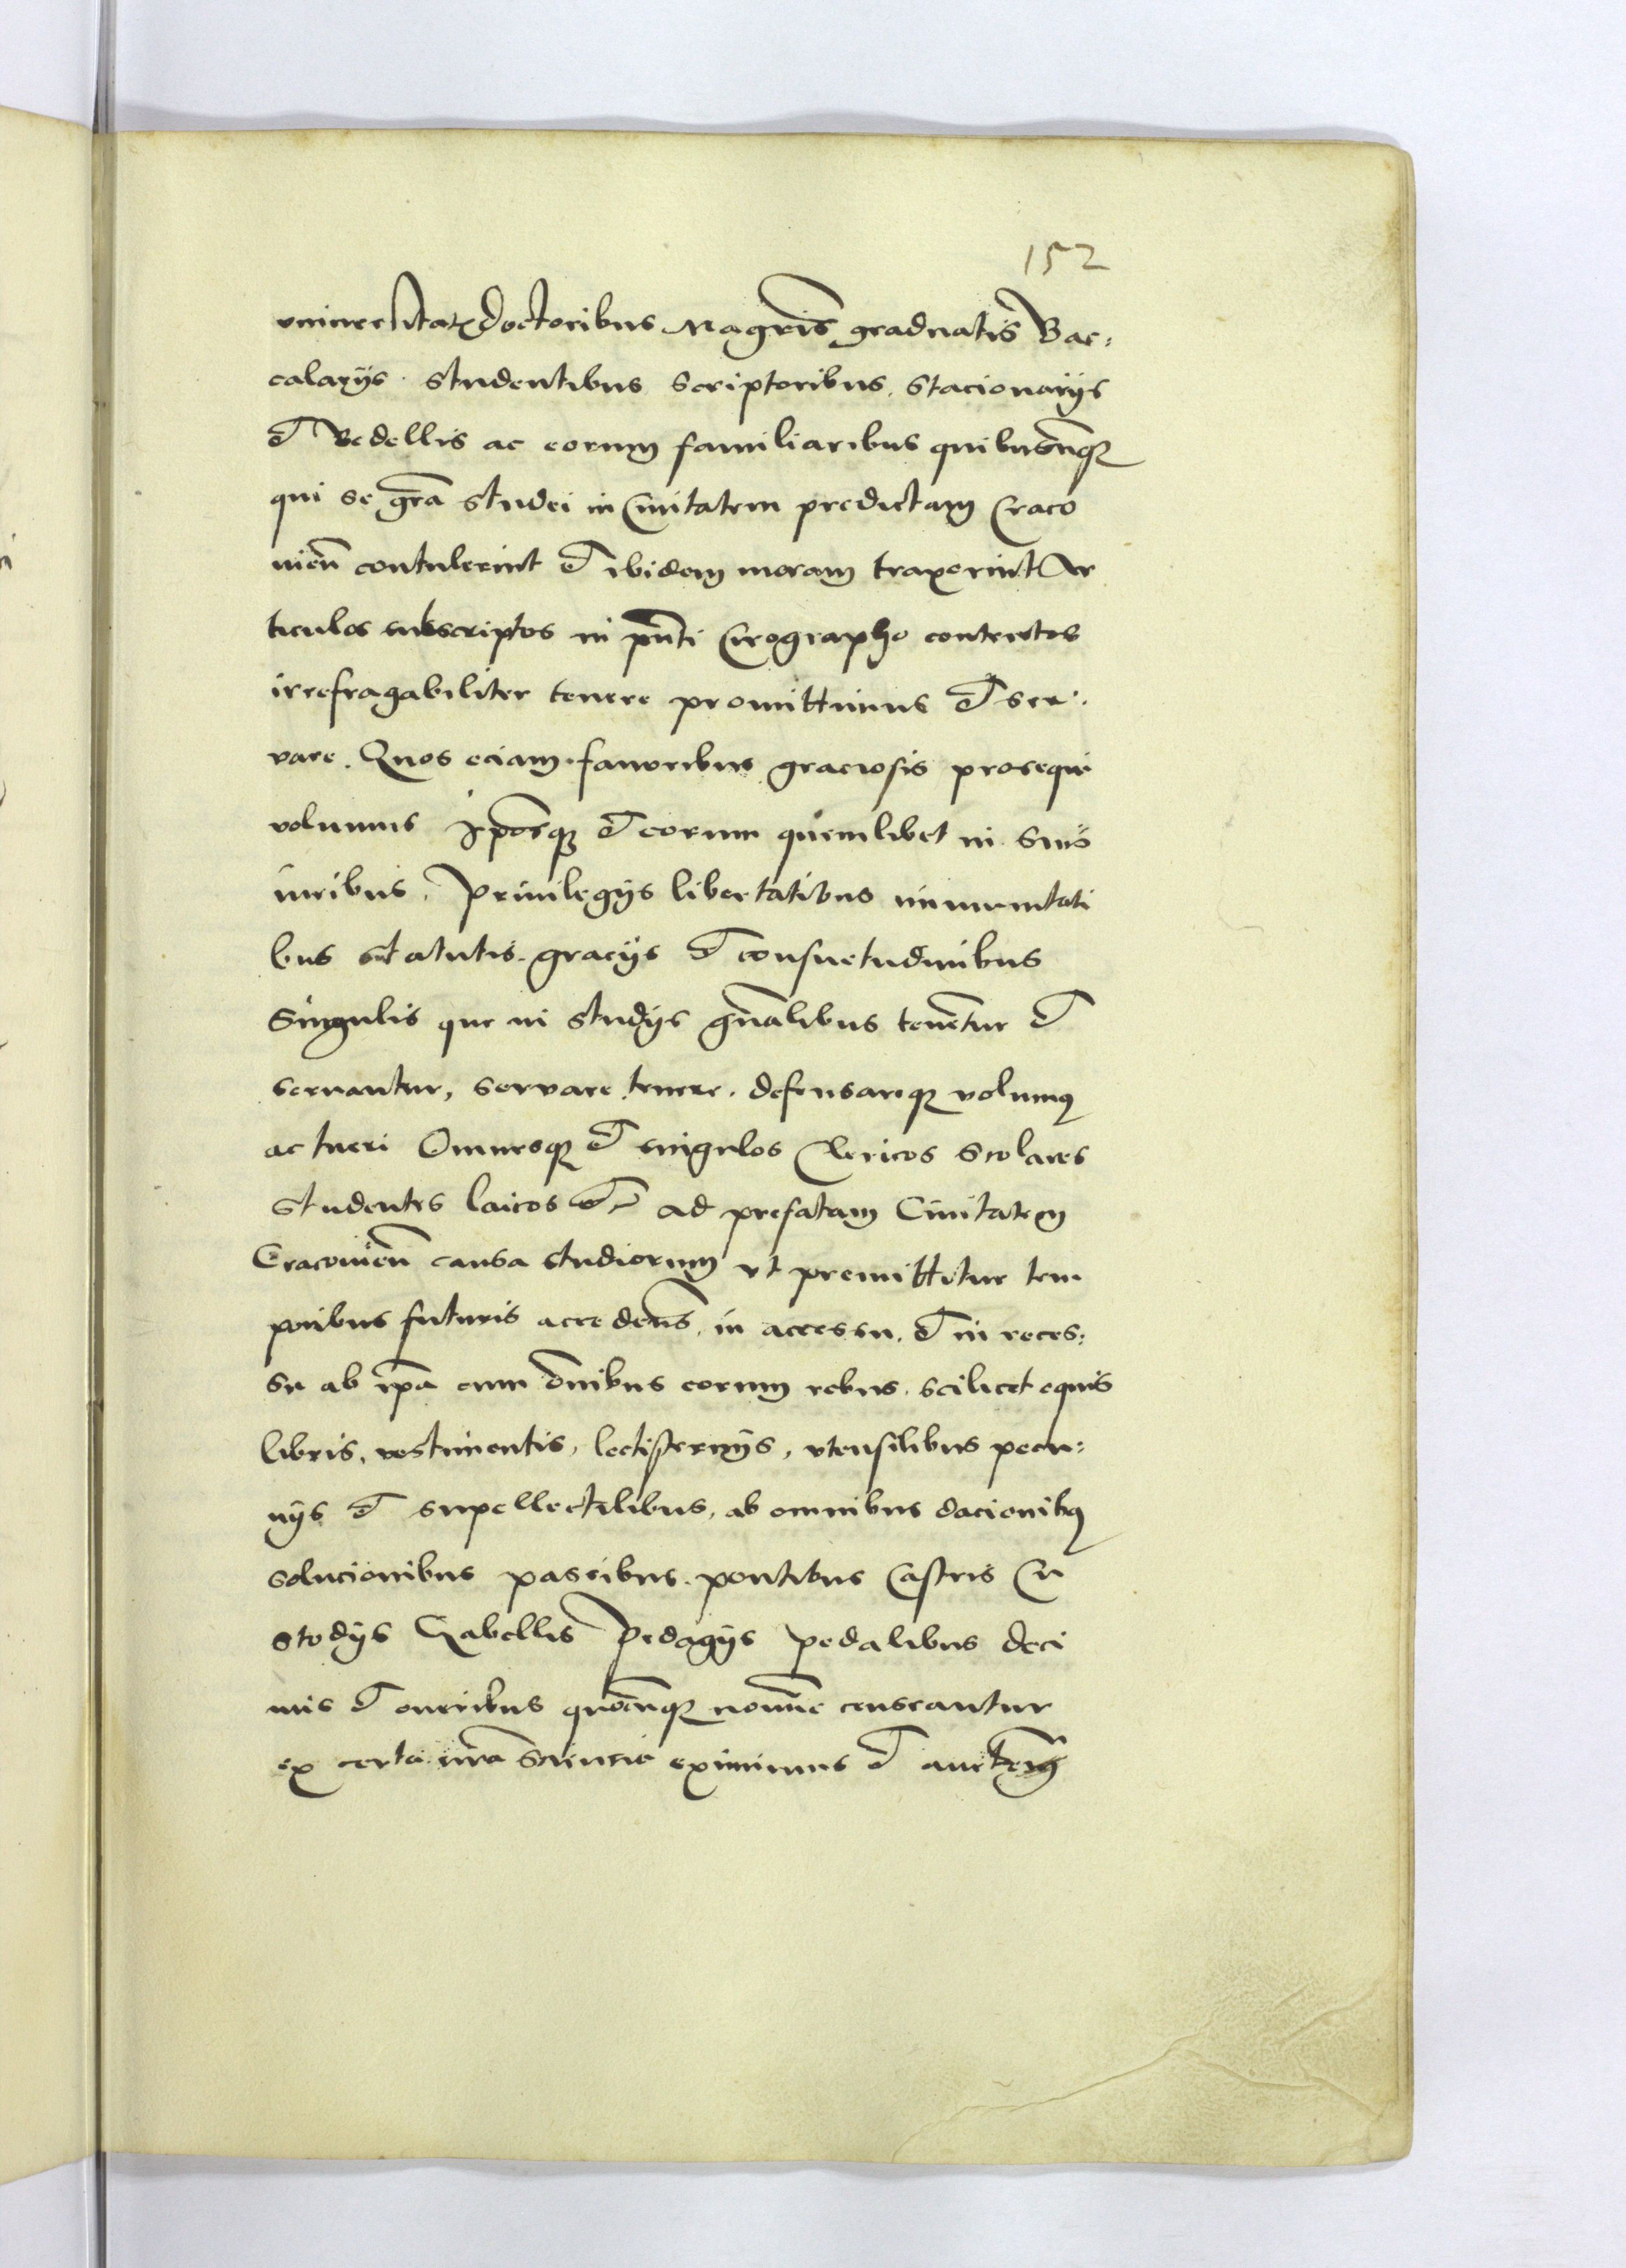 152
vniuersitatis doctoribus Magr̃is graduatis Bac:
calarijs. studentibus scriptoribus. stacionarijs
et Bedellis ac eorum familiaribus quibuscũq3
qui se gr̃a studei in Ciuitatem predictam Craco
uien̄ contulerint et ibidem moram traxerint Ar
ticulos subscriptos in pn̄ti Cirographo contentos
irrefragabiliter tenere promittimus et ser:
vare. Quos eciam fauoribus graciosis prosequi
volumus Ip̄osq3 et eorum quemlibet in suis
iuribus. Priuilegijs libertatibus immunitati
bus statutis. gracijs et consuetudinibus
Singulis que in studijs gn̄alibus tenētur et
seruantur, servare tenere. defensareq3 volum9
ac tueri Omnesq3 et singulos Clericos Scolares
studentes laicos etc̄ ad prefatam Ciuitatem
Cracouien̄ causa studiorum vt premittitur tem
poribus futuris accedentes̄, in accessu. et in reces:
su ab ip̄a cum om̄nibus eorum rebus. scilicet equis
libris, vestimentis, lectisternijs, vtensilibus pecu:
nijs et suppellectilibus, ab omnibus dacionib9
solucionibus passibus. pontibus Castris Cu
stodijs Gabellis Pedagijs pedalibus deci
mis et oneribus quocūq3 nomine censeantur
ex certa nr̄a Sciencia eximimus et auctem̃